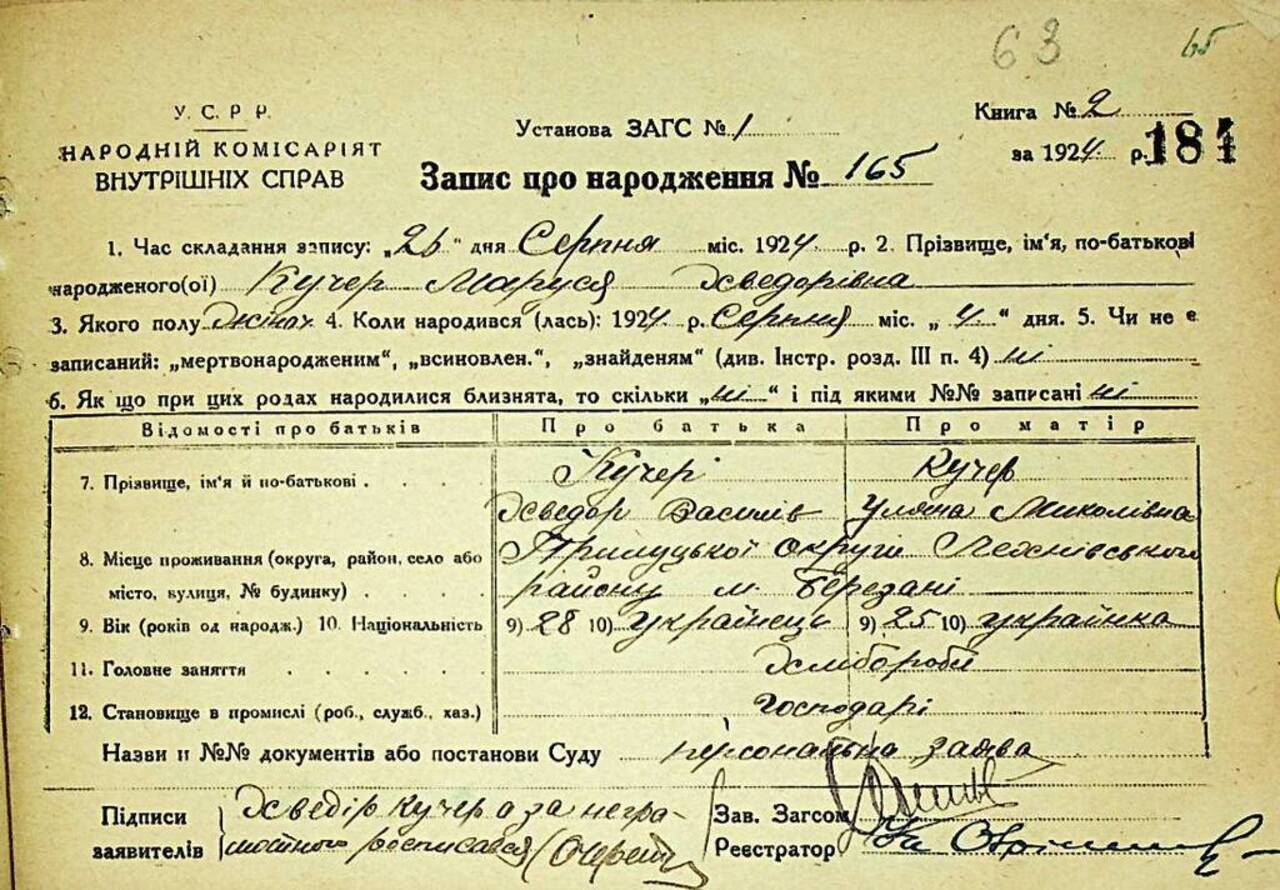 63 65
У. С. Р Р.
НАРОДНІЙ КОМІСАРІЯТ
ВНУТРІШНІХ СПРАВ
Установа ЗАГС № 1
Запис про народження № 165
Книга № 2
за 1924 р. 181
1. Час складання запису: „26“ дня Серпня міс. 1924 р. 2. Прізвище, ім'я, по-батькові
народженого(ої) Кучер Маруся Хведорівна
3. Якого полу жіноч 4. Коли народився (лась): 1924 р. Серпня міс. „4“ дня. 5. Чи не є
записаний: „мертвонародженим“, „всиновлен.“, „знайденям“ (див. Інстр. розд. III п. 4) ні
6. Як що при цих родах народилися близнята, то скільки „ні“ і під якими №№ записані ні
Відомості про батьків Про батька Про матір
7. Прізвище, ім'я й по-батькові Кучері Кучер
Хведор Василів Уляна Миколівна
8. Місце проживання (округа, район, село або Прилуцької округи
місто, вулиця, № будинку) району м. Березані
9. Вік (років од народж.) 10. Національність 9) 28 10) українець 9) 25 10) українка
11. Головне заняття Хлібороби
12. Становище в промислі (роб., служб., хаз.) Господарі
Назви й №№ документів або постанови Суду персональна заява
Підписи Хведір Кучер а за негра-
заявителів мотного росписався
Зав. Загсом
Реєстратор